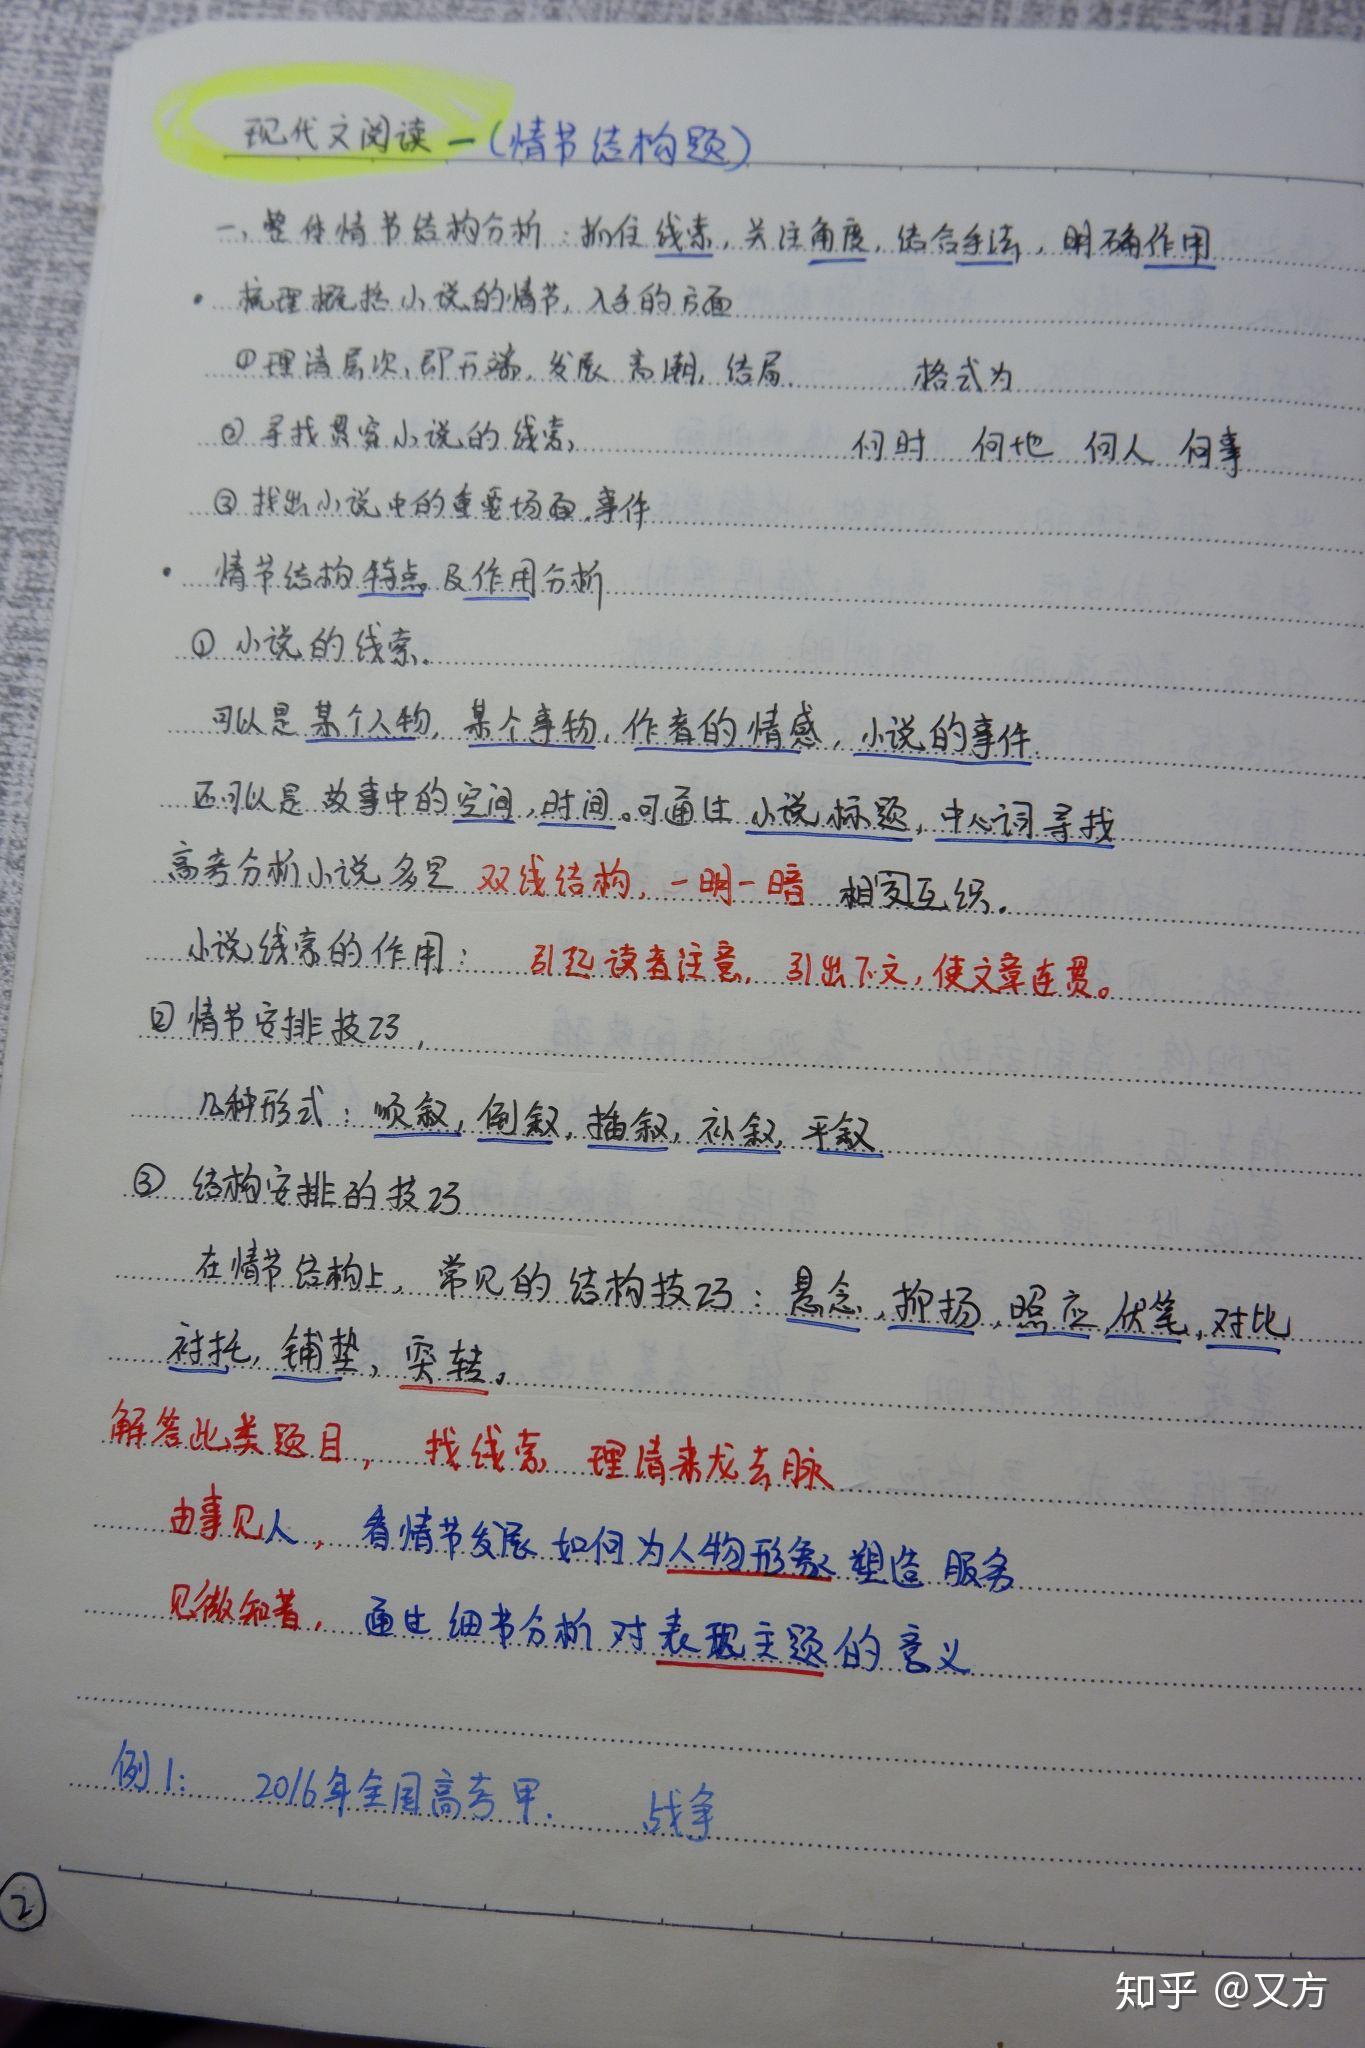 现代文阅读一(情节结构题)
一、整体情节结构分析：抓住线索，关注角度，结合手法，明确作用
· 梳理概括小说的情节，入手的方面
①理清层次，即开端，发展 高潮，结局. 格式为
② 寻找贯穿小说的线索 何时 何地 何人 何事
③ 找出小说中的重要场面.事件
· 情节结构特点及作用分析
① 小说的线索.
可以是某个人物，某个事物，作者的情感，小说的事件.
还可以是故事中的空间，时间。可通过小说标题，中心词寻找
高考分析小说多是 双线结构，一明一暗 相交互织。
小说线索的作用： 引起读者注意，引出下文，使文章连贯。
② 情节安排技巧，
几种形式：顺叙，倒叙，插叙，补叙，平叙
③ 结构安排的技巧
在情节结构上，常见的结构技巧：悬念，抑扬，照应，伏笔，对比
衬托，铺垫，突转。
解答此类题目， 找线索 理清来龙去脉
由事见人， 看情节发展如何为人物形象塑造服务
见微知著， 通过细节分析对表现主题的意义
例1： 2016年全国高考甲. 战争
②
知乎 @又方